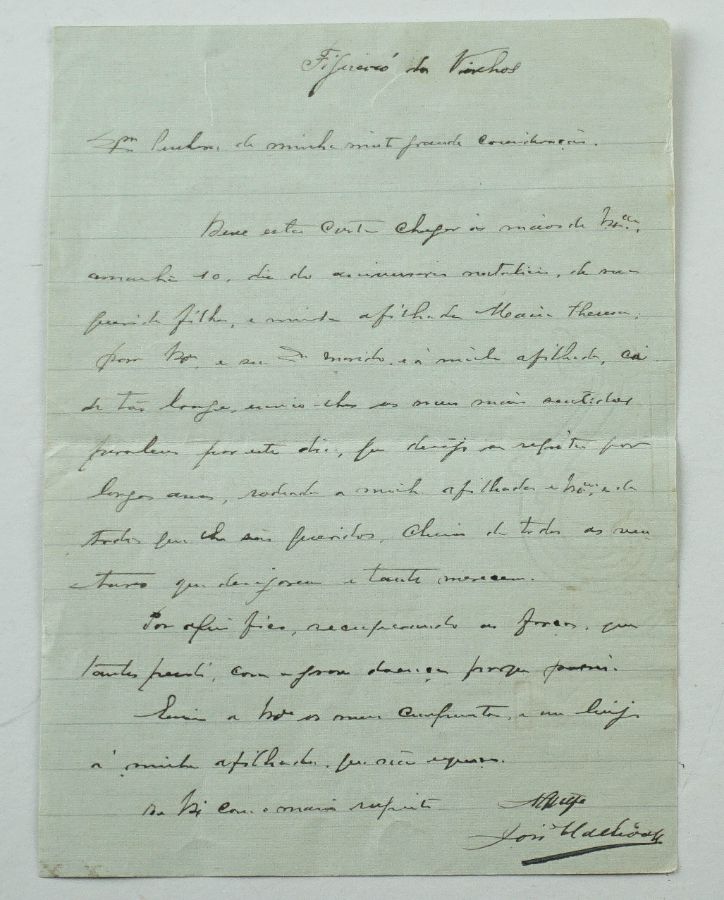 Figueiró dos Vinhos
Senhora de minha muit grande consideração.
Deve esta carta chegar ás mãos de Vª Exª,
amanhã 10, dia do aniversario natalicio, de sua
querida filha, e minha afilhada Maria Thereza,
para Vª e seu marido, e á minha afilhada, cá
de tão longe, envio-lhes os meus mais sentidos
parabens por este dia, que desejo se repita por
longos anos, rodeada a minha afilhada e de
todos que lhe são queridos, cheios de todas as
que desejarem e tanto merecem.
Por aqui fico, recuperando as forças, que
tantas perdi, com a grave doença porque passei.
Envio a Vª os meus cumprimentos, e um beijo
á minha afilhada, que não esqueço.
De Vª com o maior respeito
José Malhoa